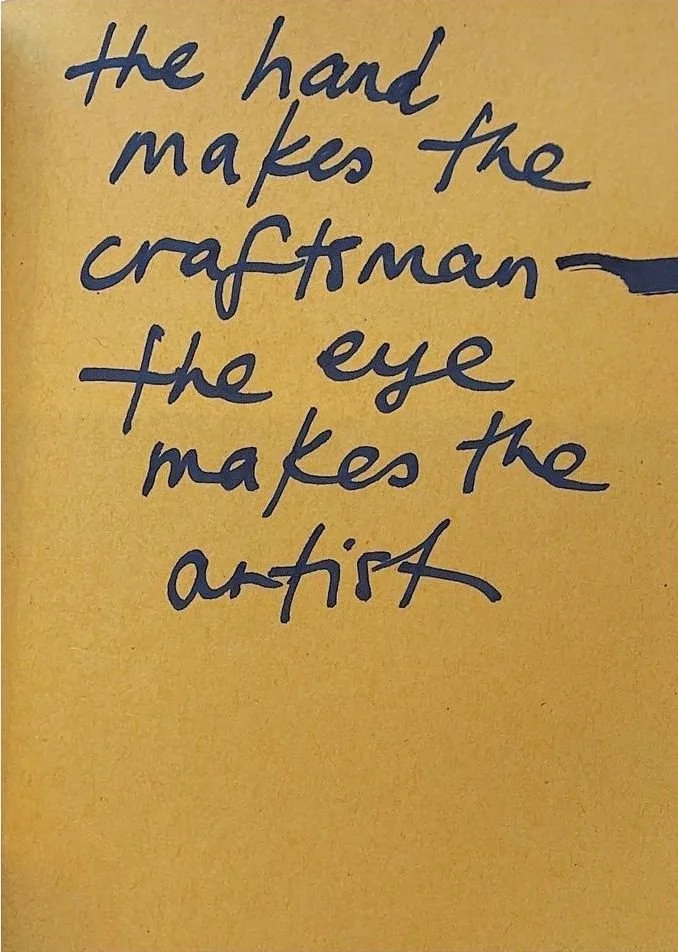 the hand
makes the
craftsman—
the eye
makes the
artist